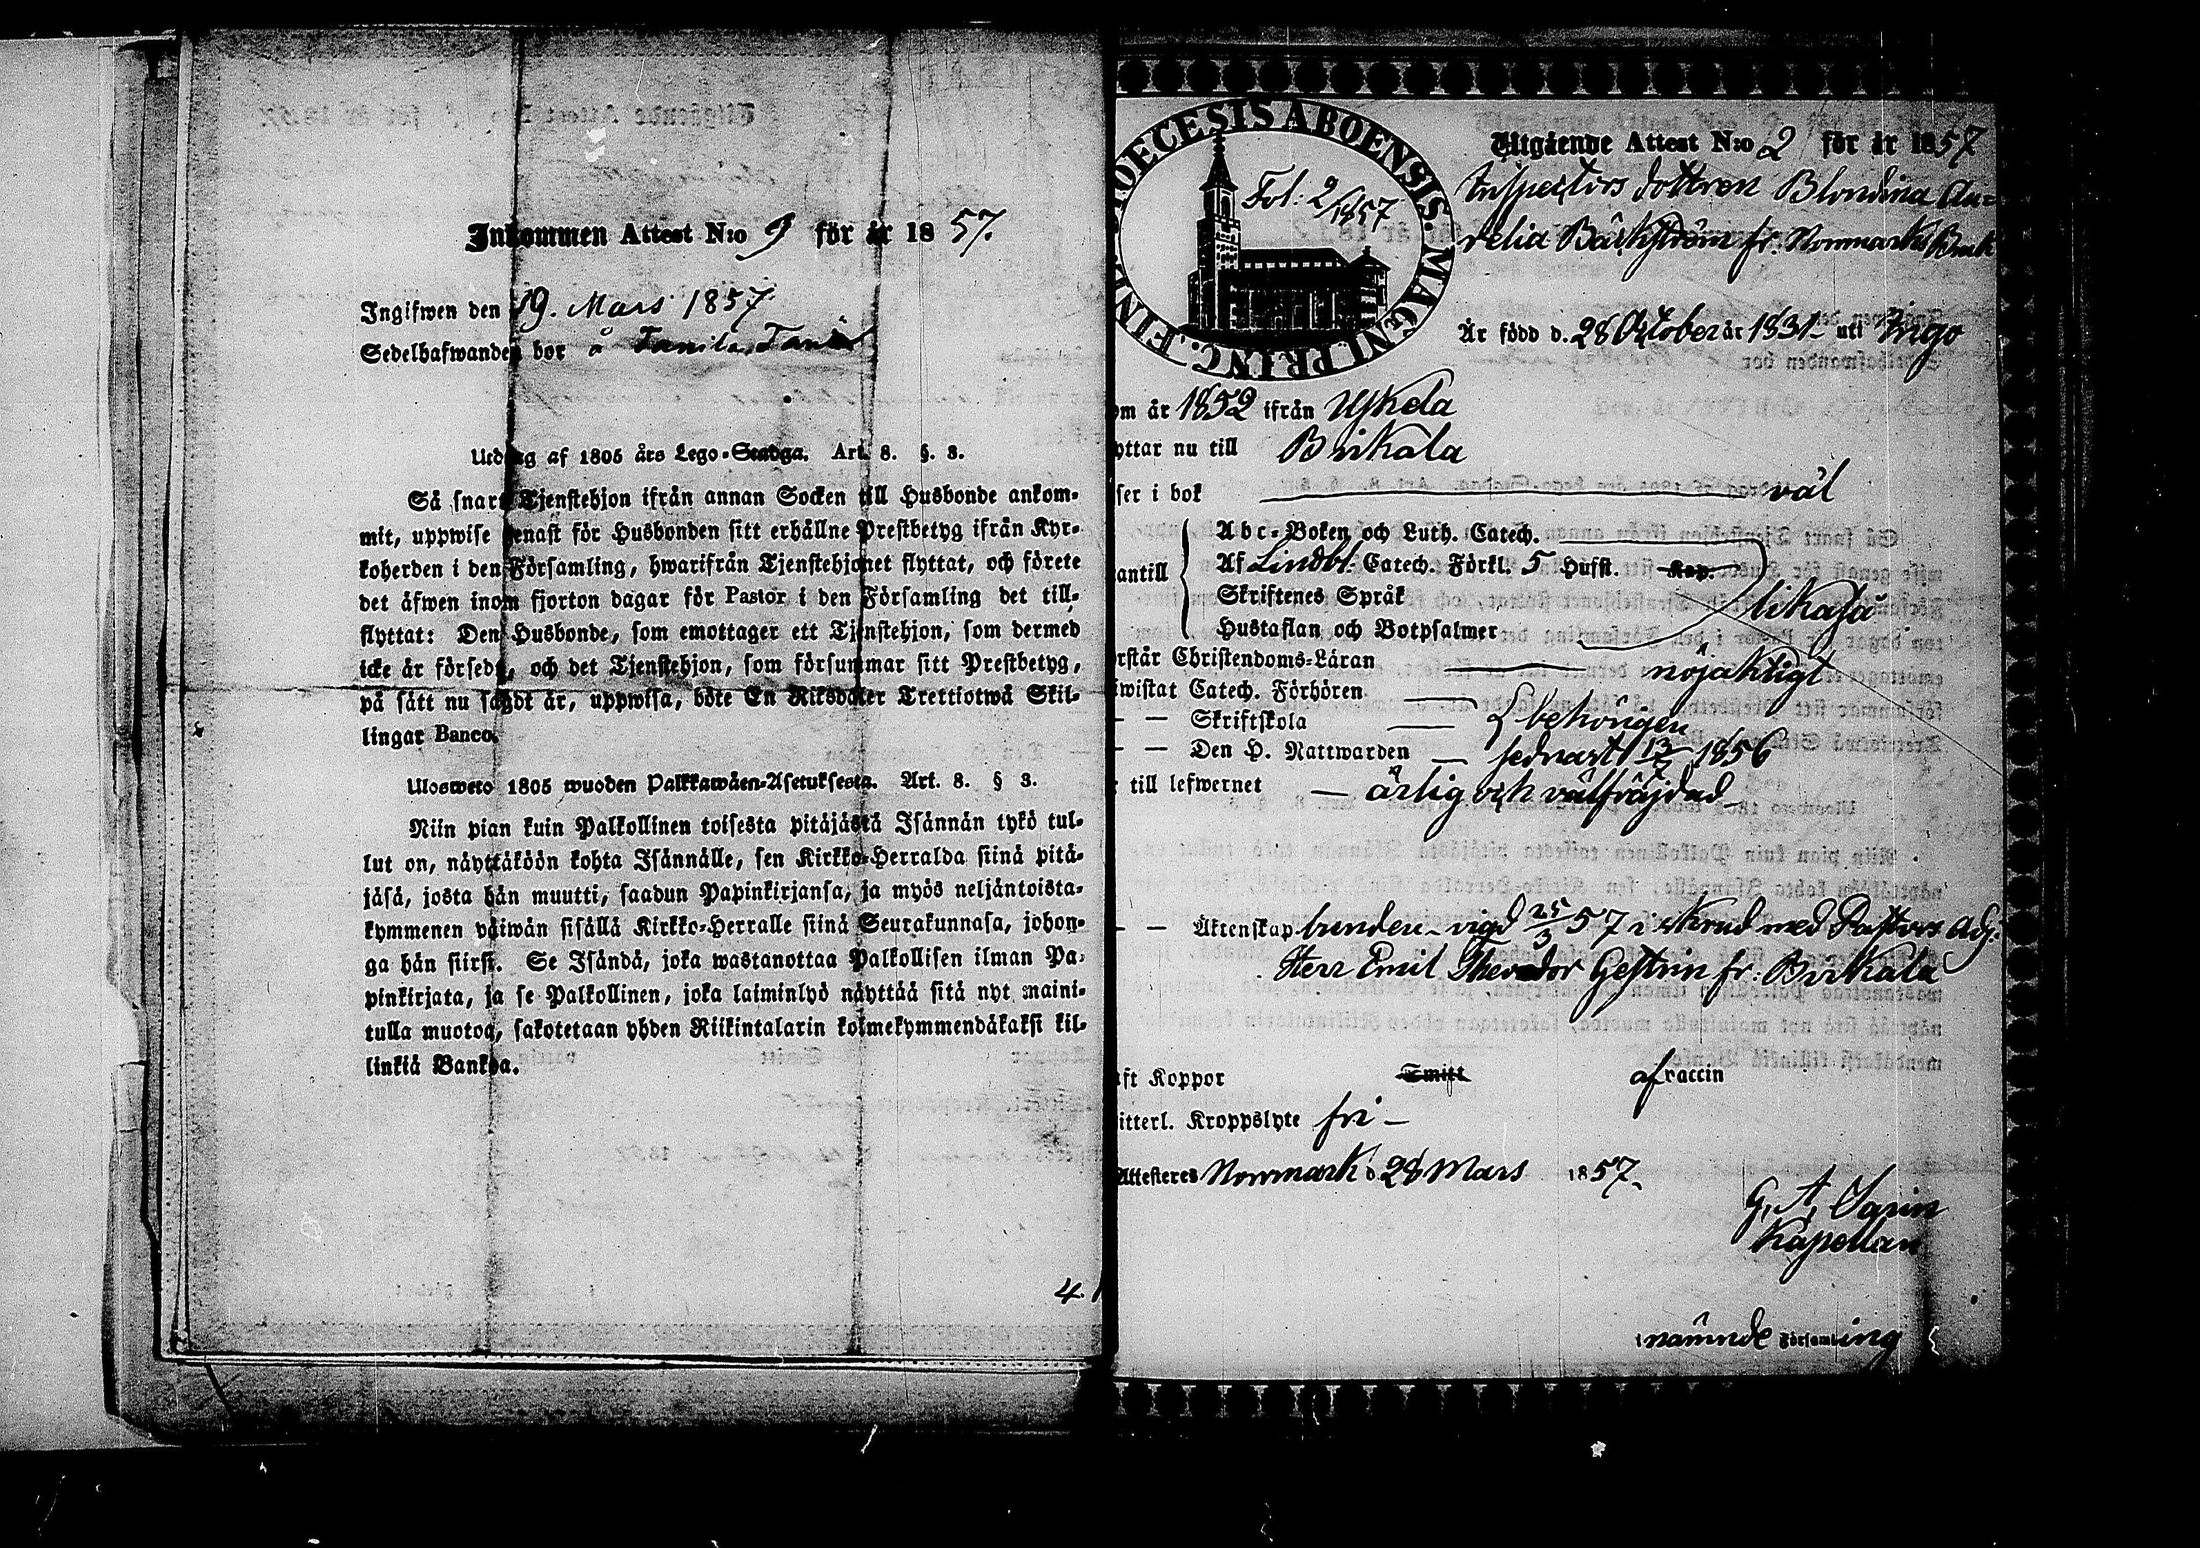 Inkommen Attest N:o 9 för år 1857.
Ingifwen den 19. Mars 1857
Sedelhafwanden bor å Tanila
Utdrag af 1805 års Lego-Stadga. Art. 8. §. 3.
Så snart Tjenstehjon ifrån annan Socken till Husbonde ankom-
mit, uppwise genast för Husbonden sitt erhållne Prestbetyg ifrån Kyr-
koherden i den Församling, hwarifrån Tjenstehjonet flyttat, och förete
det äfwen inom fjorton dagar för Pastor i den Församling det till-
flyttat: Den Husbonde, som emottager ett Tjenstehjon, som dermed
icke är försedt, och det Tjenstehjon, som försummar sitt Prestbetyg,
på sätt nu sagdt är, uppwisa, böte En Riksdaler Trettiotwå Skil-
lingar Banco.
Ulosweto 1805 wuoden Palkkawäen-Asetuksesta. Art. 8. § 3.
Niin pian kuin Palkollinen toisesta pitäjästä Isännän tykö tul-
lut on, näyttäköön kohta Isännälle, sen Kirkko-Herralda siinä pitä-
jäsä, josta hän muutti, saadun Papinkirjansa, ja myös neljäntoista-
kymmenen päiwän sisällä Kirkko-Herralle siinä Seurakunnasa, johon-
ga hän siirsi. Se Isändä, joka wastanottaa Palkollisen ilman Pa-
pinkirjata, ja se Palkollinen, joka laiminlyö näyttää sitä nyt maini-
tulla muotoa, sakotetaan yhden Riikintalarin kolmekymmendäkaksi kil-
linkiä Bankoa.
4.
DIOECESIS ABOENSIS. MAGNI. PRINC. FINL.
Fol: 2/1857
Utgående Attest N:o 2 för år 1857
Inspectors dottren Blondina Au-
relia Bäckström fr. Normarks Bruk
Är född d. 28 October år 1831 uti Ingo
om år 1852 ifrån Uskela
yttar nu till Birkala
ser i bok väl
Abc-Boken och Luth. Catech.
antill Af Lindbl. Catech. Förkl. 5 Hufst. Kap.
Skriftenes Språk likaså
Hustaflan och Botpsalmer
rstår Christendoms-Läran nöjaktigt
wistat Catech. Förhören
— — Skriftskola behörigen
— — Den H. Nattwarden sednast 1856
till lefwernet — ärlig och välfräjdad
— — Äktenskap bunden – vigd 25/3 57 i Kkrud med Pastors Adj.
Herr Emil Theodor Gestrin fr. Birkala
ft Koppor Smitt af vaccin
itterl. Kroppslyte fri –
Attesteres Normark d. 28 Mars 1857.
G. A.
Kapellan
i nämnde Församling